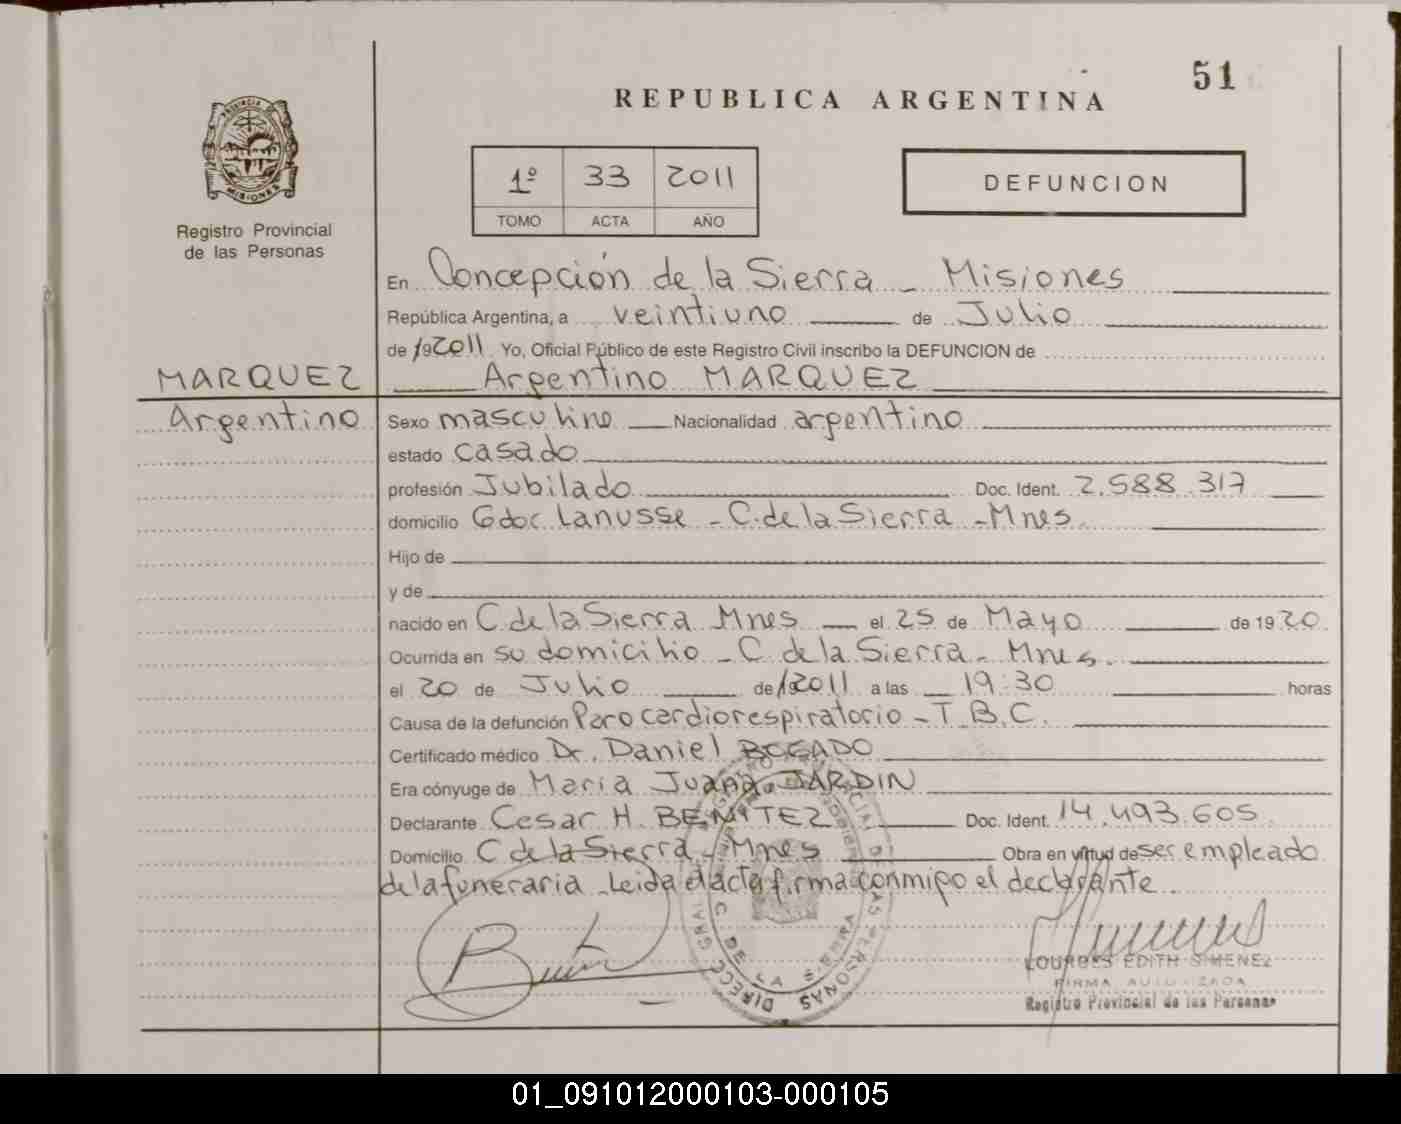 51
REPUBLICA ARGENTINA
1º 33 2011
TOMO ACTA AÑO
DEFUNCION
PROVINCIA DE
MISIONES
Registro Provincial
de las Personas
En Concepción de la Sierra - Misiones
República Argentina, a veintiuno de Julio
de 192011 Yo, Oficial Público de este Registro Civil inscribo la DEFUNCION de
MARQUEZ Argentino MARQUEZ
Argentino Sexo masculino Nacionalidad argentino
estado casado
profesión Jubilado Doc. Ident. 2.588.317
domicilio Gdor. Lanusse - C. de la Sierra - Mnes.
Hijo de
y de
nacido en C. de la Sierra Mnes el 25 de Mayo de 1920
Ocurrida en su domicilio - C. de la Sierra - Mnes.
el 20 de Julio de 192011 a las 19:30 horas
Causa de la defunción Paro cardiorespiratorio - T.B.C.
Certificado médico Dr. Daniel BOGADO
Era cónyuge de María Juana JARDIN
Declarante Cesar H. BENITEZ Doc. Ident. 14.493.605
Domicilio C. de la Sierra - Mnes Obra en virtud de ser empleado
de la funeraria - Leida el acta firma conmigo el declarante
LOURDES EDITH GIMENEZ
FIRMA AUTORIZADA
Registro Provincial de las Personas
01_091012000103-000105